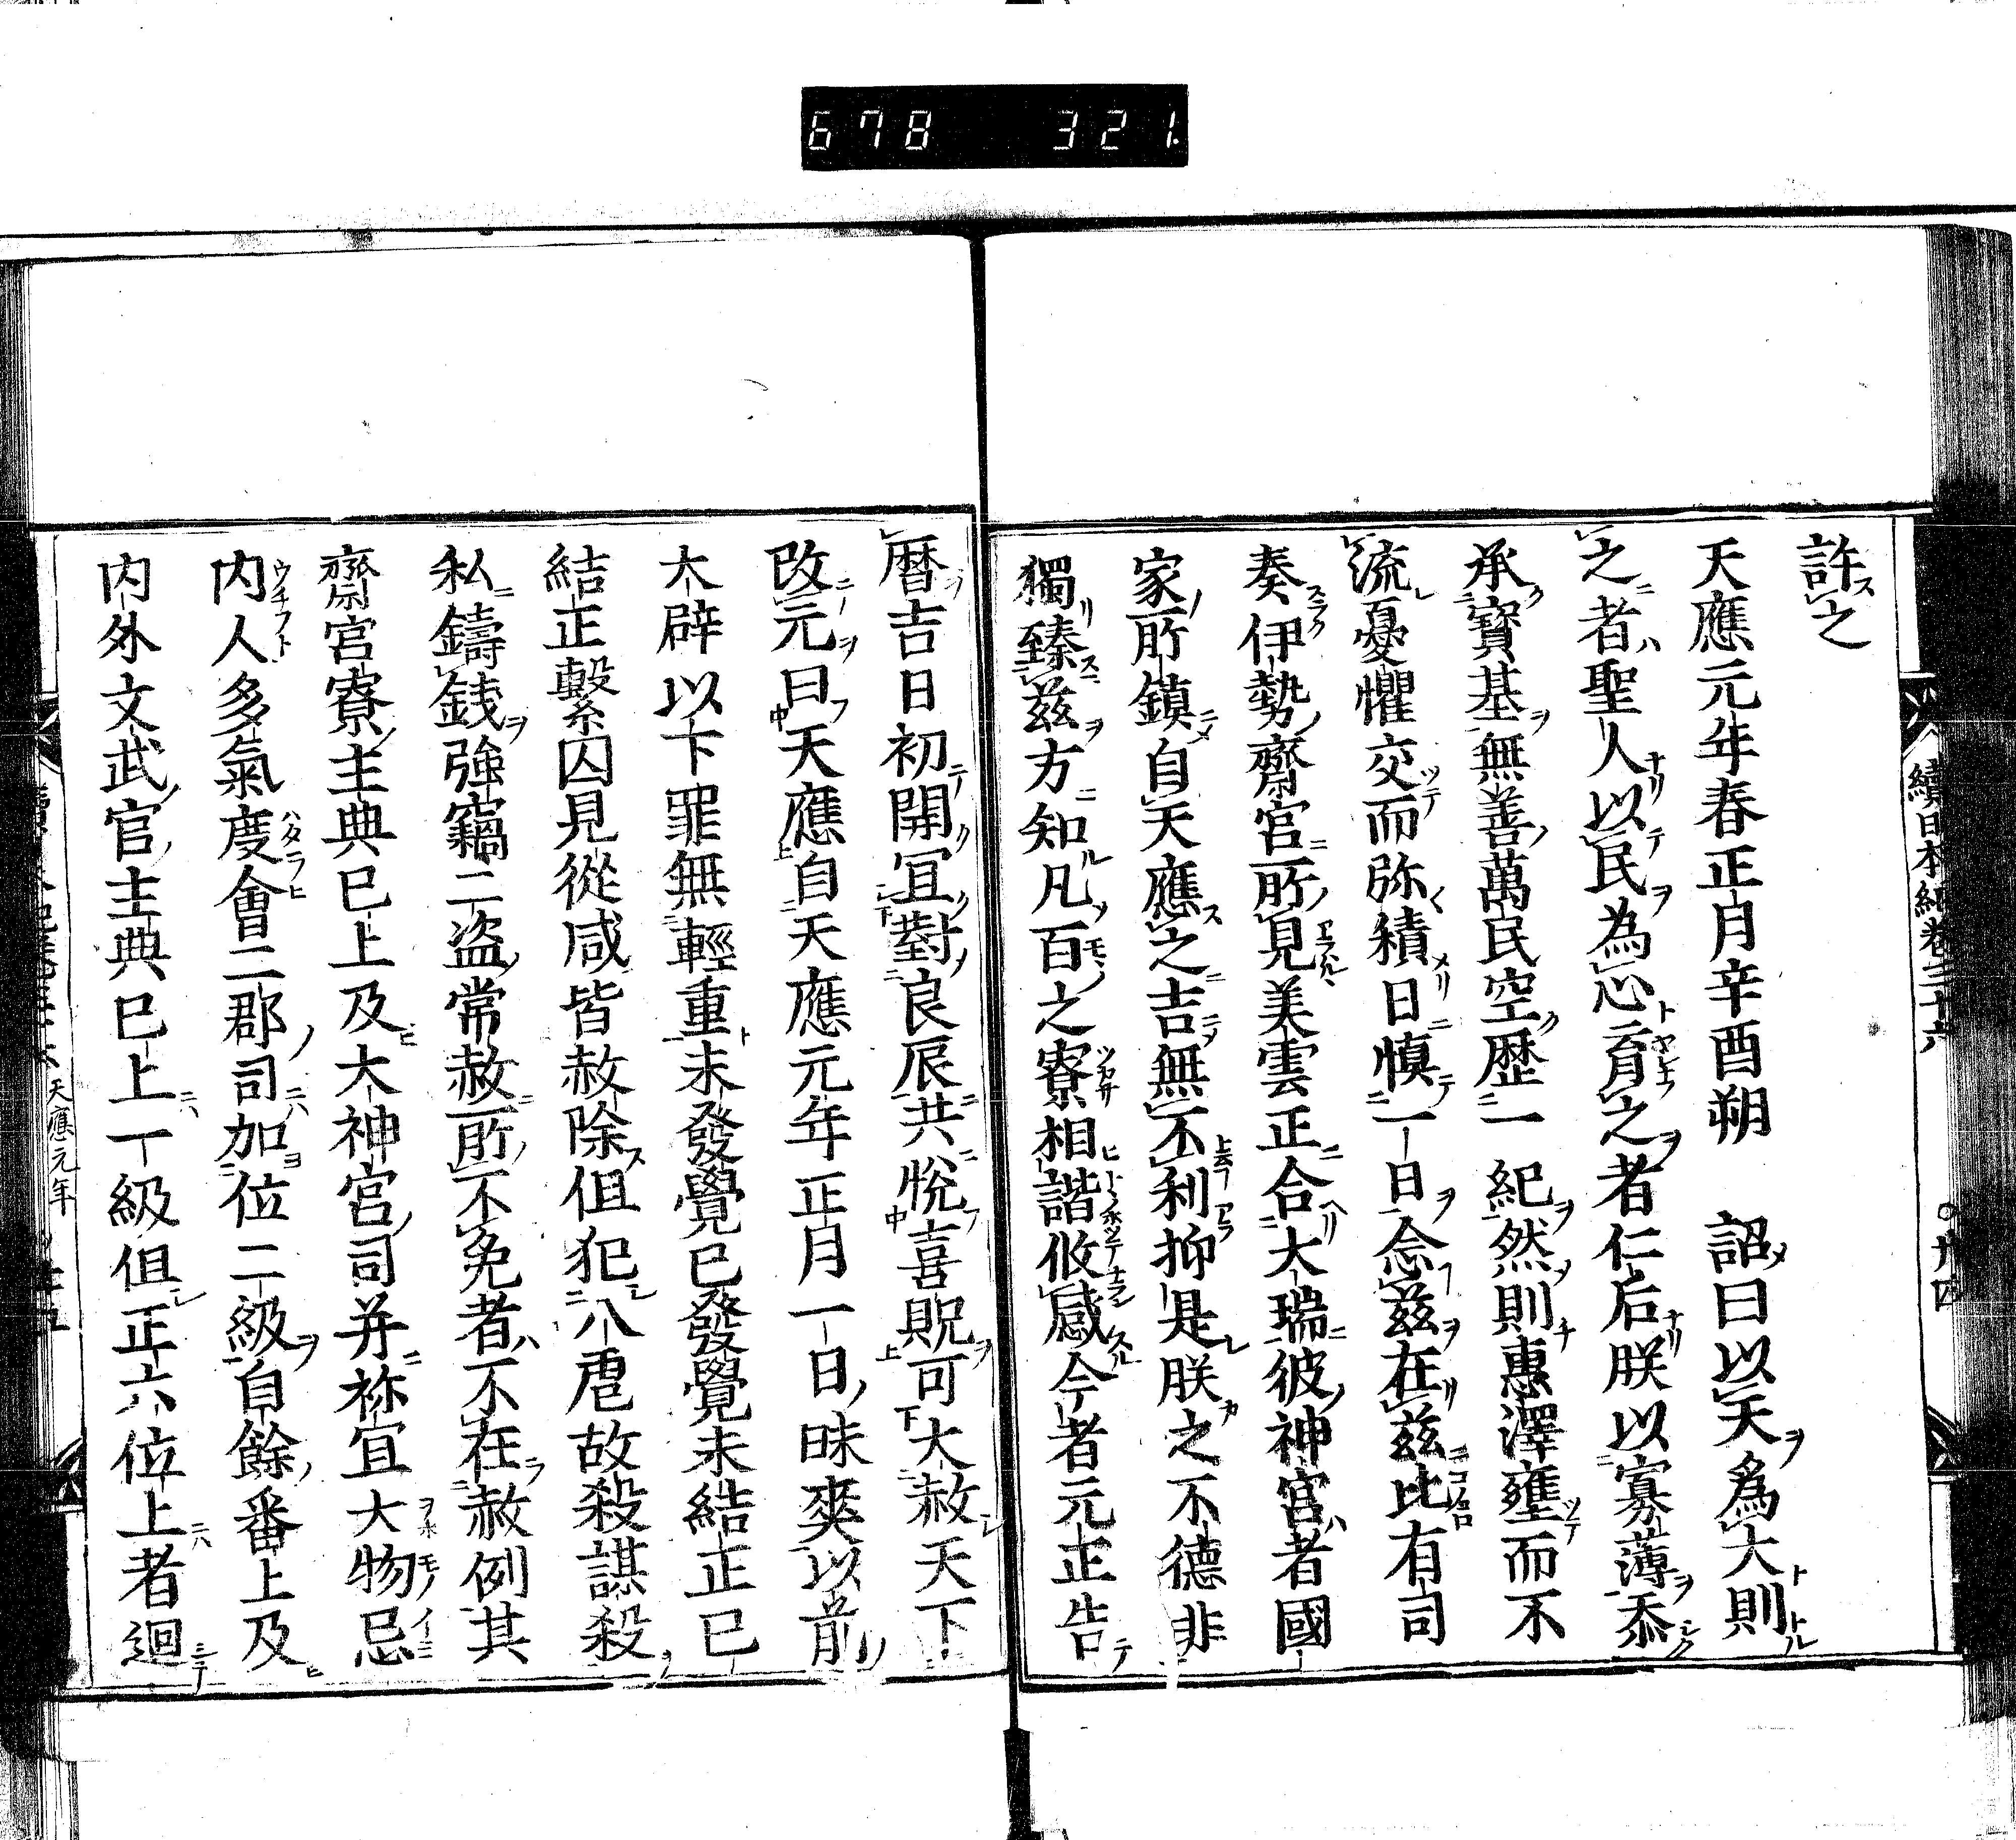 678 321
續日本紀卷三十六 ○卅四
許之
天應元年春正月辛酉朔 詔曰以天爲大則
之者聖人以民為心育之者仁后朕以寡薄忝
承寳基無善萬民空歴一紀然則惠澤壅而不
流憂懼交而弥積日慎一日念兹在兹比有司
奏伊勢齋宮所見美雲正合大瑞彼神宮者國
家所鎮自天應之吉無不利抑是朕之不德非
獨臻兹方知凡百之寮相諧攸感今者元正告
暦吉日初開冝對良辰共悅喜貺可大赦天下
改元曰天應自天應元年正月一日昧爽以前
大辟以下罪無輕重未發覺已發覺未結正已
結正繫囚見徒咸皆赦除但犯八虐故殺謀殺
私鑄錢強竊二盗常赦所不免者不在赦例其
齋宮寮主典已上及大神宮司并祢宜大物忌
内人多氣度會二郡司加位二級自餘番上及
内外文武官主典已上一級但正六位上者迴
天應元年